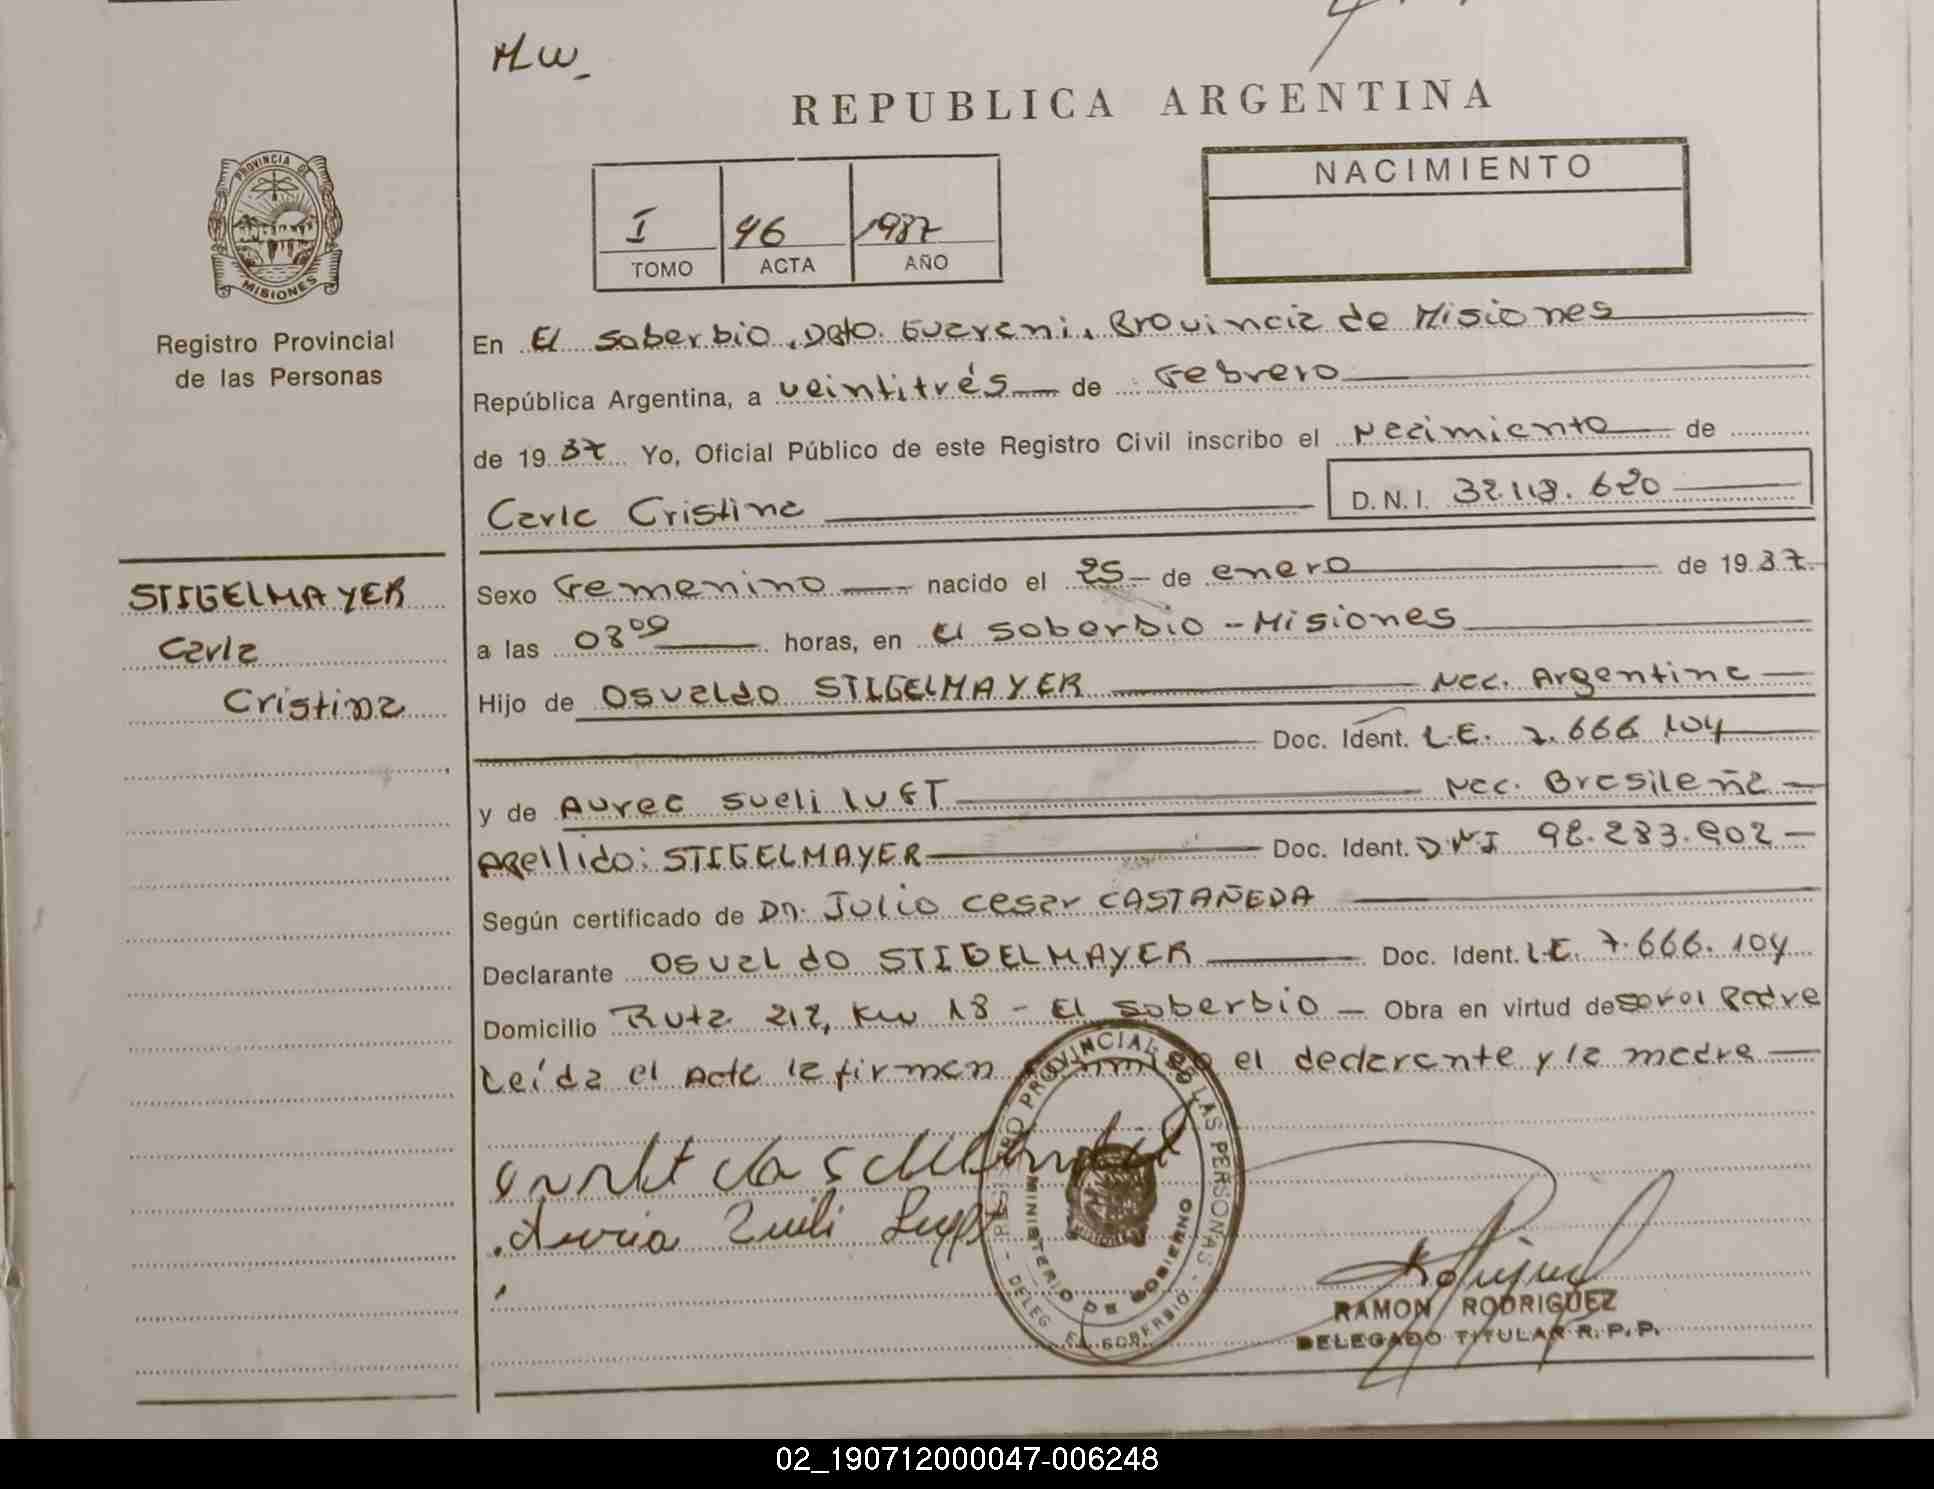 HW_
REPUBLICA ARGENTINA
PROVINCIA DE
MISIONES
Registro Provincial
de las Personas
I 46 1987
TOMO ACTA AÑO
NACIMIENTO
En El Soberbio, Dpto. Guarani, Provincia de Misiones
República Argentina, a veintitrés de Febrero
de 1987 Yo, Oficial Público de este Registro Civil inscribo el Nacimiento de
Carla Cristina
D.N.I. 32.118.620
STIGELMAYER
Carla
Cristina
Sexo Femenino nacido el 25 de enero de 1987.
a las 08 00 horas, en El Soberbio - Misiones
Hijo de Osvaldo STIGELMAYER Nac. Argentina
Doc. Ident. L.E. 7.666.104
y de Aurea Sueli LUFT Nac. Brasileña
Apellido: STIGELMAYER Doc. Ident. DNI 92.283.902
Según certificado de Dn. Julio Cesar CASTAÑEDA
Declarante Osvaldo STIGELMAYER Doc. Ident. L.E. 7.666.104
Domicilio Ruta 212, Km 18 - El Soberbio - Obra en virtud de ser el Padre
Leída el Acta la firman el declarante y la madre
REGISTRO PROVINCIAL DE LAS PERSONAS
MINISTERIO DE GOBIERNO
DELEG. EL SOBERBIO
RAMON RODRIGUEZ
DELEGADO TITULAR R.P.P.
02_190712000047-006248